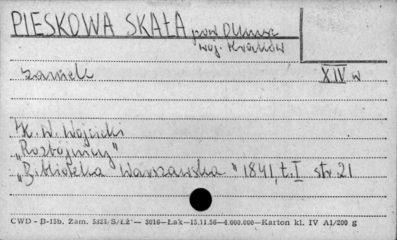 PIESKOWA SKAŁA pow. Olkusz
woj. Kraków
zamek XIV w
K. W. Wójcicki
„Rozbójnicy"
„Biblioteka Warszawska" 1841, t. I str 21
CWD - B-15b. Zam. — 3016 — Łak — 15.11.56 — 6.000.000 — Karton kl. IV A1/200 g